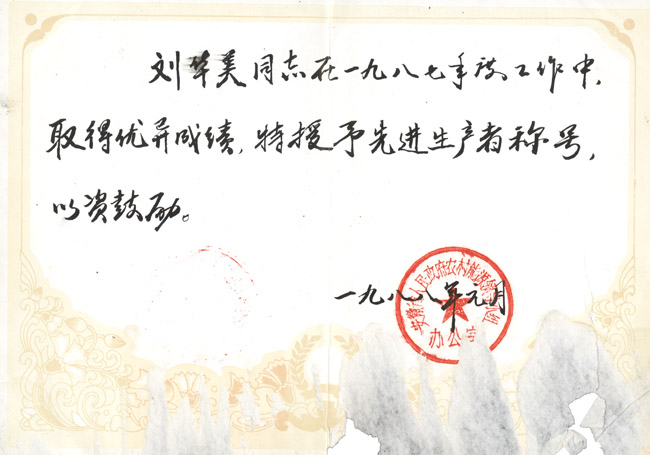 刘华美同志在一九八七年度工作中,
取得优异成绩,特授予先进生产者称号,
以资鼓励。
一九八八年元月
人民政府农村能源
办公室